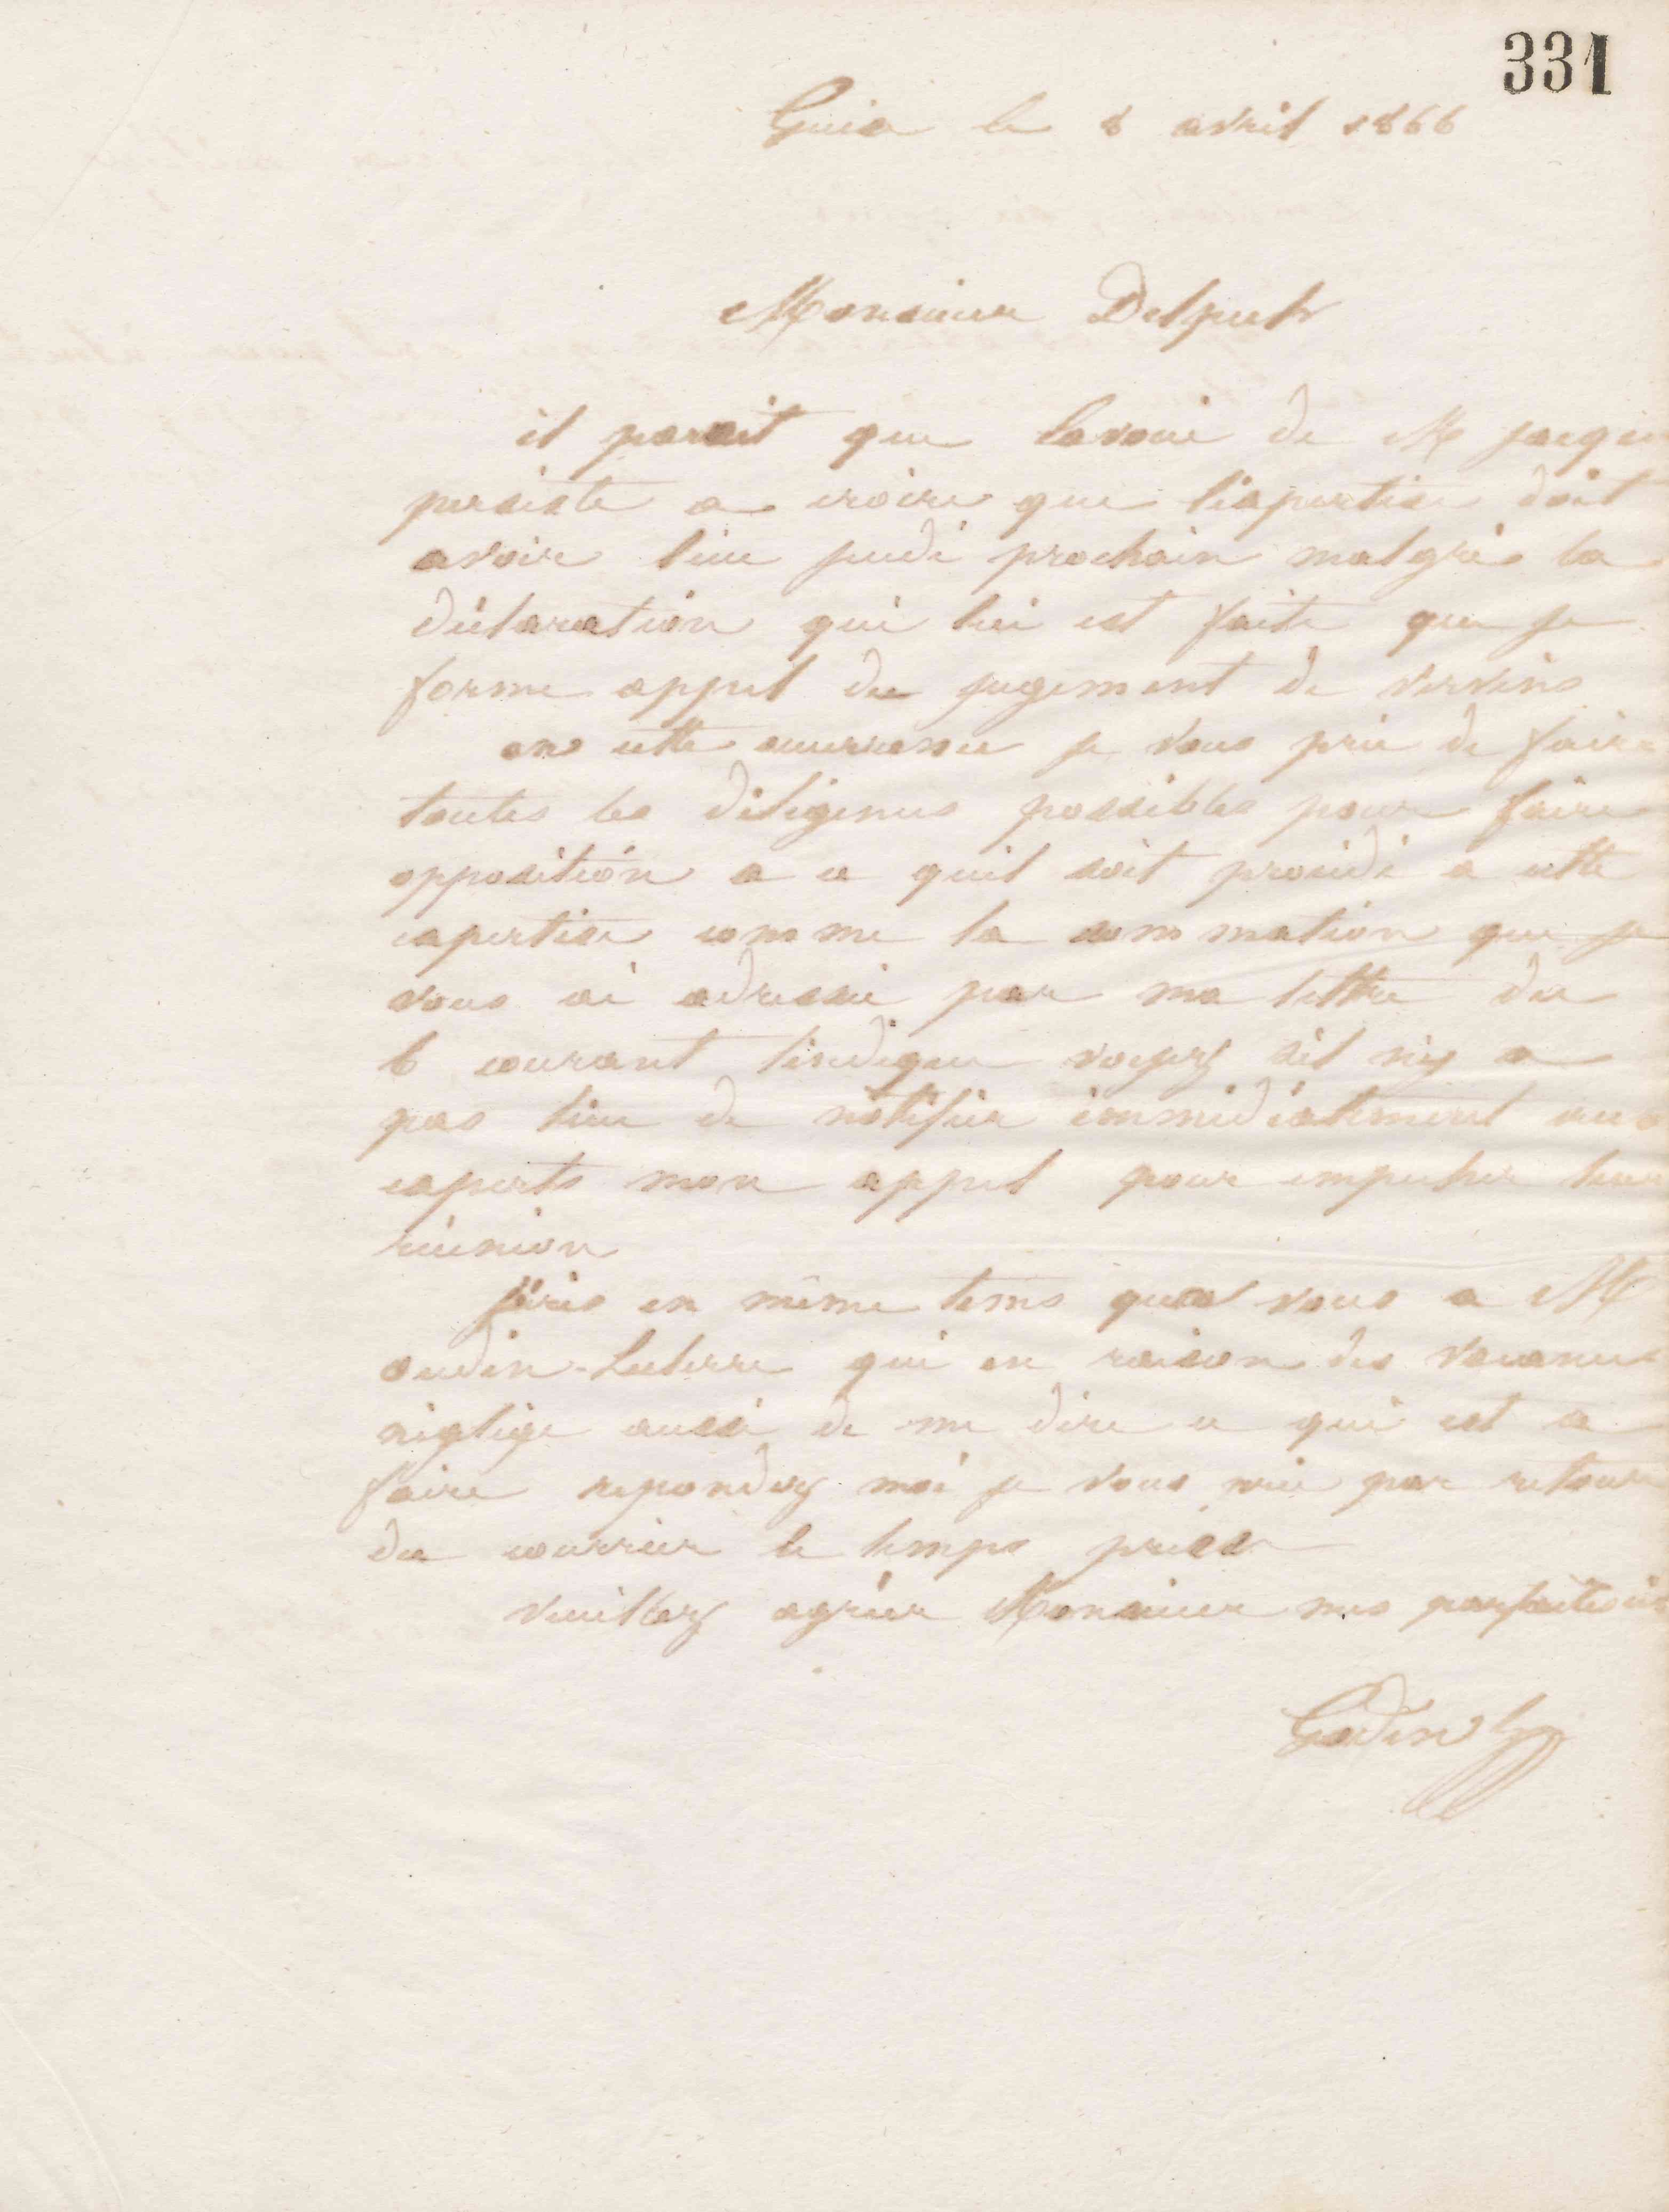 331
Guise le 8 avril 1866
Monsieur Delpech
il parait que lavoué de M jacquin
persiste a croire que l'expertise doit
avoir lieu jeudi prochain malgrés la
déclaration qui lui est faite que je
forme appel du jugement de vervins
en cette occurrence je vous prie de faire
toutes les diligences possibles pour faire
opposition a ce quil soit procédé a cette
expertise comme la sommation que je
vous ai adressée par ma lettre du
6 courant l'indique voyez sil n'y a
pas lieu de notifier immédiatement aux
experts mon appel pour empecher leur
réunion
jécris en même tems qua vous a M
oudin-Leclerre qui en raison des vacances
néglige aussi de me dire ce qui est a
faire repondez moi je vous prie par retour
du courrier le temps presse
veuillez agréer Monsieur mes parfaites
Godin